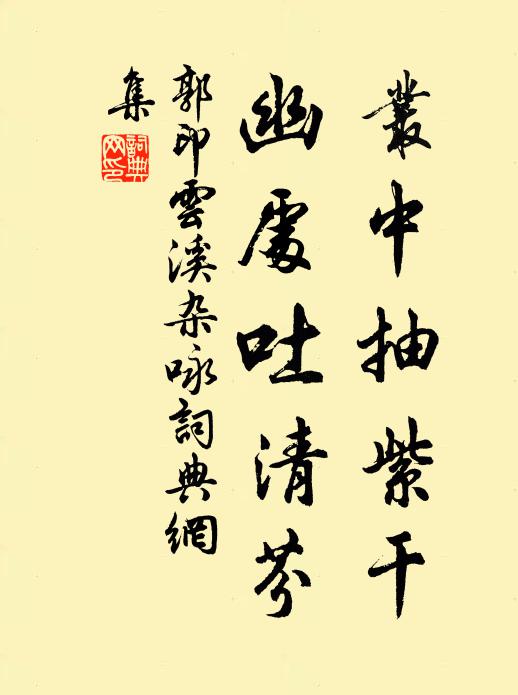 叢中抽紫干
幽處吐清芬
郭印雲溪杂咏詞典網
集
詞典網印